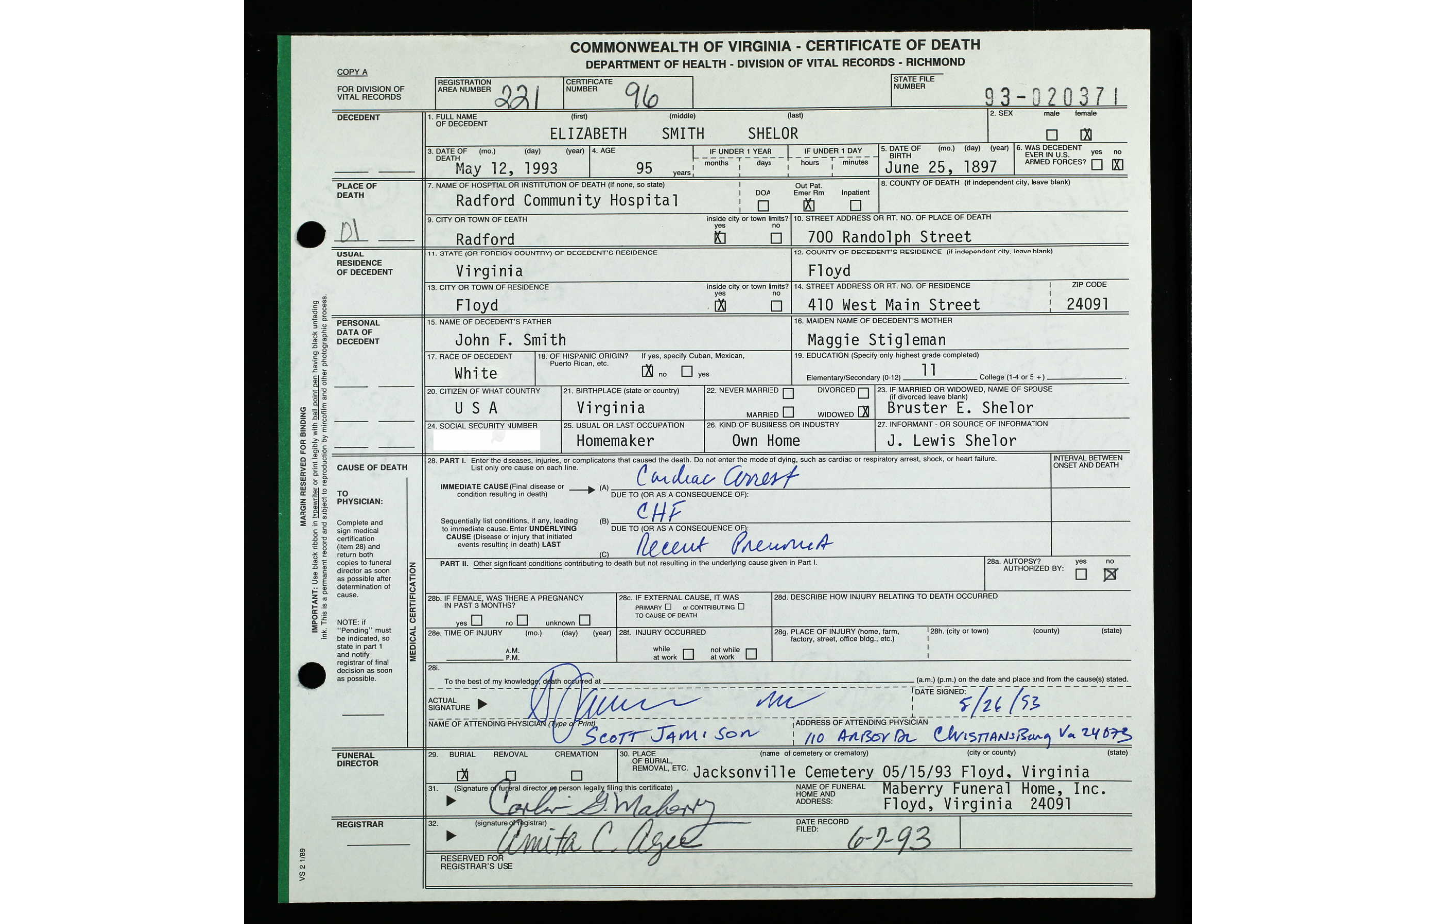 COMMONWEALTH OF VIRGINIA - CERTIFICATE OF DEATH
DEPARTMENT OF HEALTH - DIVISION OF VITAL RECORDS - RICHMOND
COPY A
FOR DIVISION OF VITAL RECORDS
REGISTRATION AREA NUMBER 221
CERTIFICATE NUMBER 96
STATE FILE NUMBER 93-020371
DECEDENT
1. FULL NAME OF DECEDENT (first) (middle) (last)
ELIZABETH SMITH SHELOR
2. SEX male female X
3. DATE OF DEATH (mo.) (day) (year)
May 12, 1993
4. AGE 95 years
IF UNDER 1 YEAR months days
IF UNDER 1 DAY hours minutes
5. DATE OF BIRTH (mo.) (day) (year)
June 25, 1897
6. WAS DECEDENT EVER IN U.S. ARMED FORCES? yes no X
PLACE OF DEATH
7. NAME OF HOSPTIAL OR INSTITUTION OF DEATH (if none, so state)
Radford Community Hospital
DOA Out Pat. Emer Rm X Inpatient
8. COUNTY OF DEATH (if independent city, leave blank)
9. CITY OR TOWN OF DEATH
Radford
inside city or town limits? yes X no
10. STREET ADDRESS OR RT. NO. OF PLACE OF DEATH
700 Randolph Street
USUAL RESIDENCE OF DECEDENT
11. STATE (OR FOREIGN COUNTRY) OF DECEDENT'S RESIDENCE
Virginia
12. COUNTY OF DECEDENT'S RESIDENCE (if independent city, leave blank)
Floyd
13. CITY OR TOWN OF RESIDENCE
Floyd
inside city or town limits? yes X no
14. STREET ADDRESS OR RT. NO. OF RESIDENCE
410 West Main Street
ZIP CODE 24091
PERSONAL DATA OF DECEDENT
15. NAME OF DECEDENT'S FATHER
John F. Smith
16. MAIDEN NAME OF DECEDENT'S MOTHER
Maggie Stigleman
17. RACE OF DECEDENT
White
18. OF HISPANIC ORIGIN? If yes, specify Cuban, Mexican, Puerto Rican, etc. X no yes
19. EDUCATION (Specify only highest grade completed)
Elementary/Secondary (0-12) 11 College (1-4 or 5 +)
20. CITIZEN OF WHAT COUNTRY
U S A
21. BIRTHPLACE (state or country)
Virginia
22. NEVER MARRIED DIVORCED
MARRIED WIDOWED X
23. IF MARRIED OR WIDOWED, NAME OF SPOUSE (if divorced leave blank)
Bruster E. Shelor
24. SOCIAL SECURITY NUMBER
25. USUAL OR LAST OCCUPATION
Homemaker
26. KIND OF BUSINESS OR INDUSTRY
Own Home
27. INFORMANT - OR SOURCE OF INFORMATION
J. Lewis Shelor
CAUSE OF DEATH
TO PHYSICIAN:
Complete and sign medical certification (item 28) and return both copies to funeral director as soon as possible after determination of cause.
NOTE: if "Pending" must be indicated, so state in part 1 and notify registrar of final decision as soon as possible.
MEDICAL CERTIFICATION
28. PART I. Enter the diseases, injuries, or complicatons that caused the death. Do not enter the mode of dying, such as cardiac or respiratory arrest, shock, or heart failure.
List only one cause on each line.
INTERVAL BETWEEN ONSET AND DEATH
IMMEDIATE CAUSE (Final disease or condition resulting in death) (A) Cardiac arrest
DUE TO (OR AS A CONSEQUENCE OF):
Sequentially list conditions, if any, leading to immediate cause. Enter UNDERLYING CAUSE (Disease or injury that initiated events resulting in death) LAST
(B) CHF
DUE TO (OR AS A CONSEQUENCE OF):
(C) Recent
PART II. Other signficant conditions contributing to death but not resulting in the underlying cause given in Part I.
28a. AUTOPSY? AUTHORIZED BY: yes no X
28b. IF FEMALE, WAS THERE A PREGNANCY IN PAST 3 MONTHS? yes no unknown
28c. IF EXTERNAL CAUSE, IT WAS PRIMARY or CONTRIBUTING TO CAUSE OF DEATH
28d. DESCRIBE HOW INJURY RELATING TO DEATH OCCURRED
28e. TIME OF INJURY (mo.) (day) (year) A.M. P.M.
28f. INJURY OCCURRED while at work not while at work
28g. PLACE OF INJURY (home, farm, factory, street, office bldg., etc.)
28h. (city or town) (county) (state)
28i.
To the best of my knowledge, death occurred at (a.m.) (p.m.) on the date and place and from the cause(s) stated.
ACTUAL SIGNATURE
DATE SIGNED: 5/26/93
NAME OF ATTENDING PHYSICIAN (Type or Print)
SCOTT JAMISON
ADDRESS OF ATTENDING PHYSICIAN
110 ARBOR DR CHRISTIANSBurg Va 24073
FUNERAL DIRECTOR
29. BURIAL X REMOVAL CREMATION
30. PLACE OF BURIAL, REMOVAL, ETC. (name of cemetery or crematory) (city or county) (state)
Jacksonville Cemetery 05/15/93 Floyd, Virginia
31. (Signature of funeral director or person legally filing this certificate)
Carlin G. Maberry
NAME OF FUNERAL HOME AND ADDRESS:
Maberry Funeral Home, Inc.
Floyd, Virginia 24091
REGISTRAR
32. (signature of registrar)
Anita C. Agee
DATE RECORD FILED: 6-7-93
RESERVED FOR REGISTRAR'S USE
MARGIN RESERVED FOR BINDING
IMPORTANT: Use black ribbon in typewriter or print legibly with ball point pen having black unfading ink. This is a permanent record and subject to reproduction by mircofilm and other photographic process.
VS 2 1/89